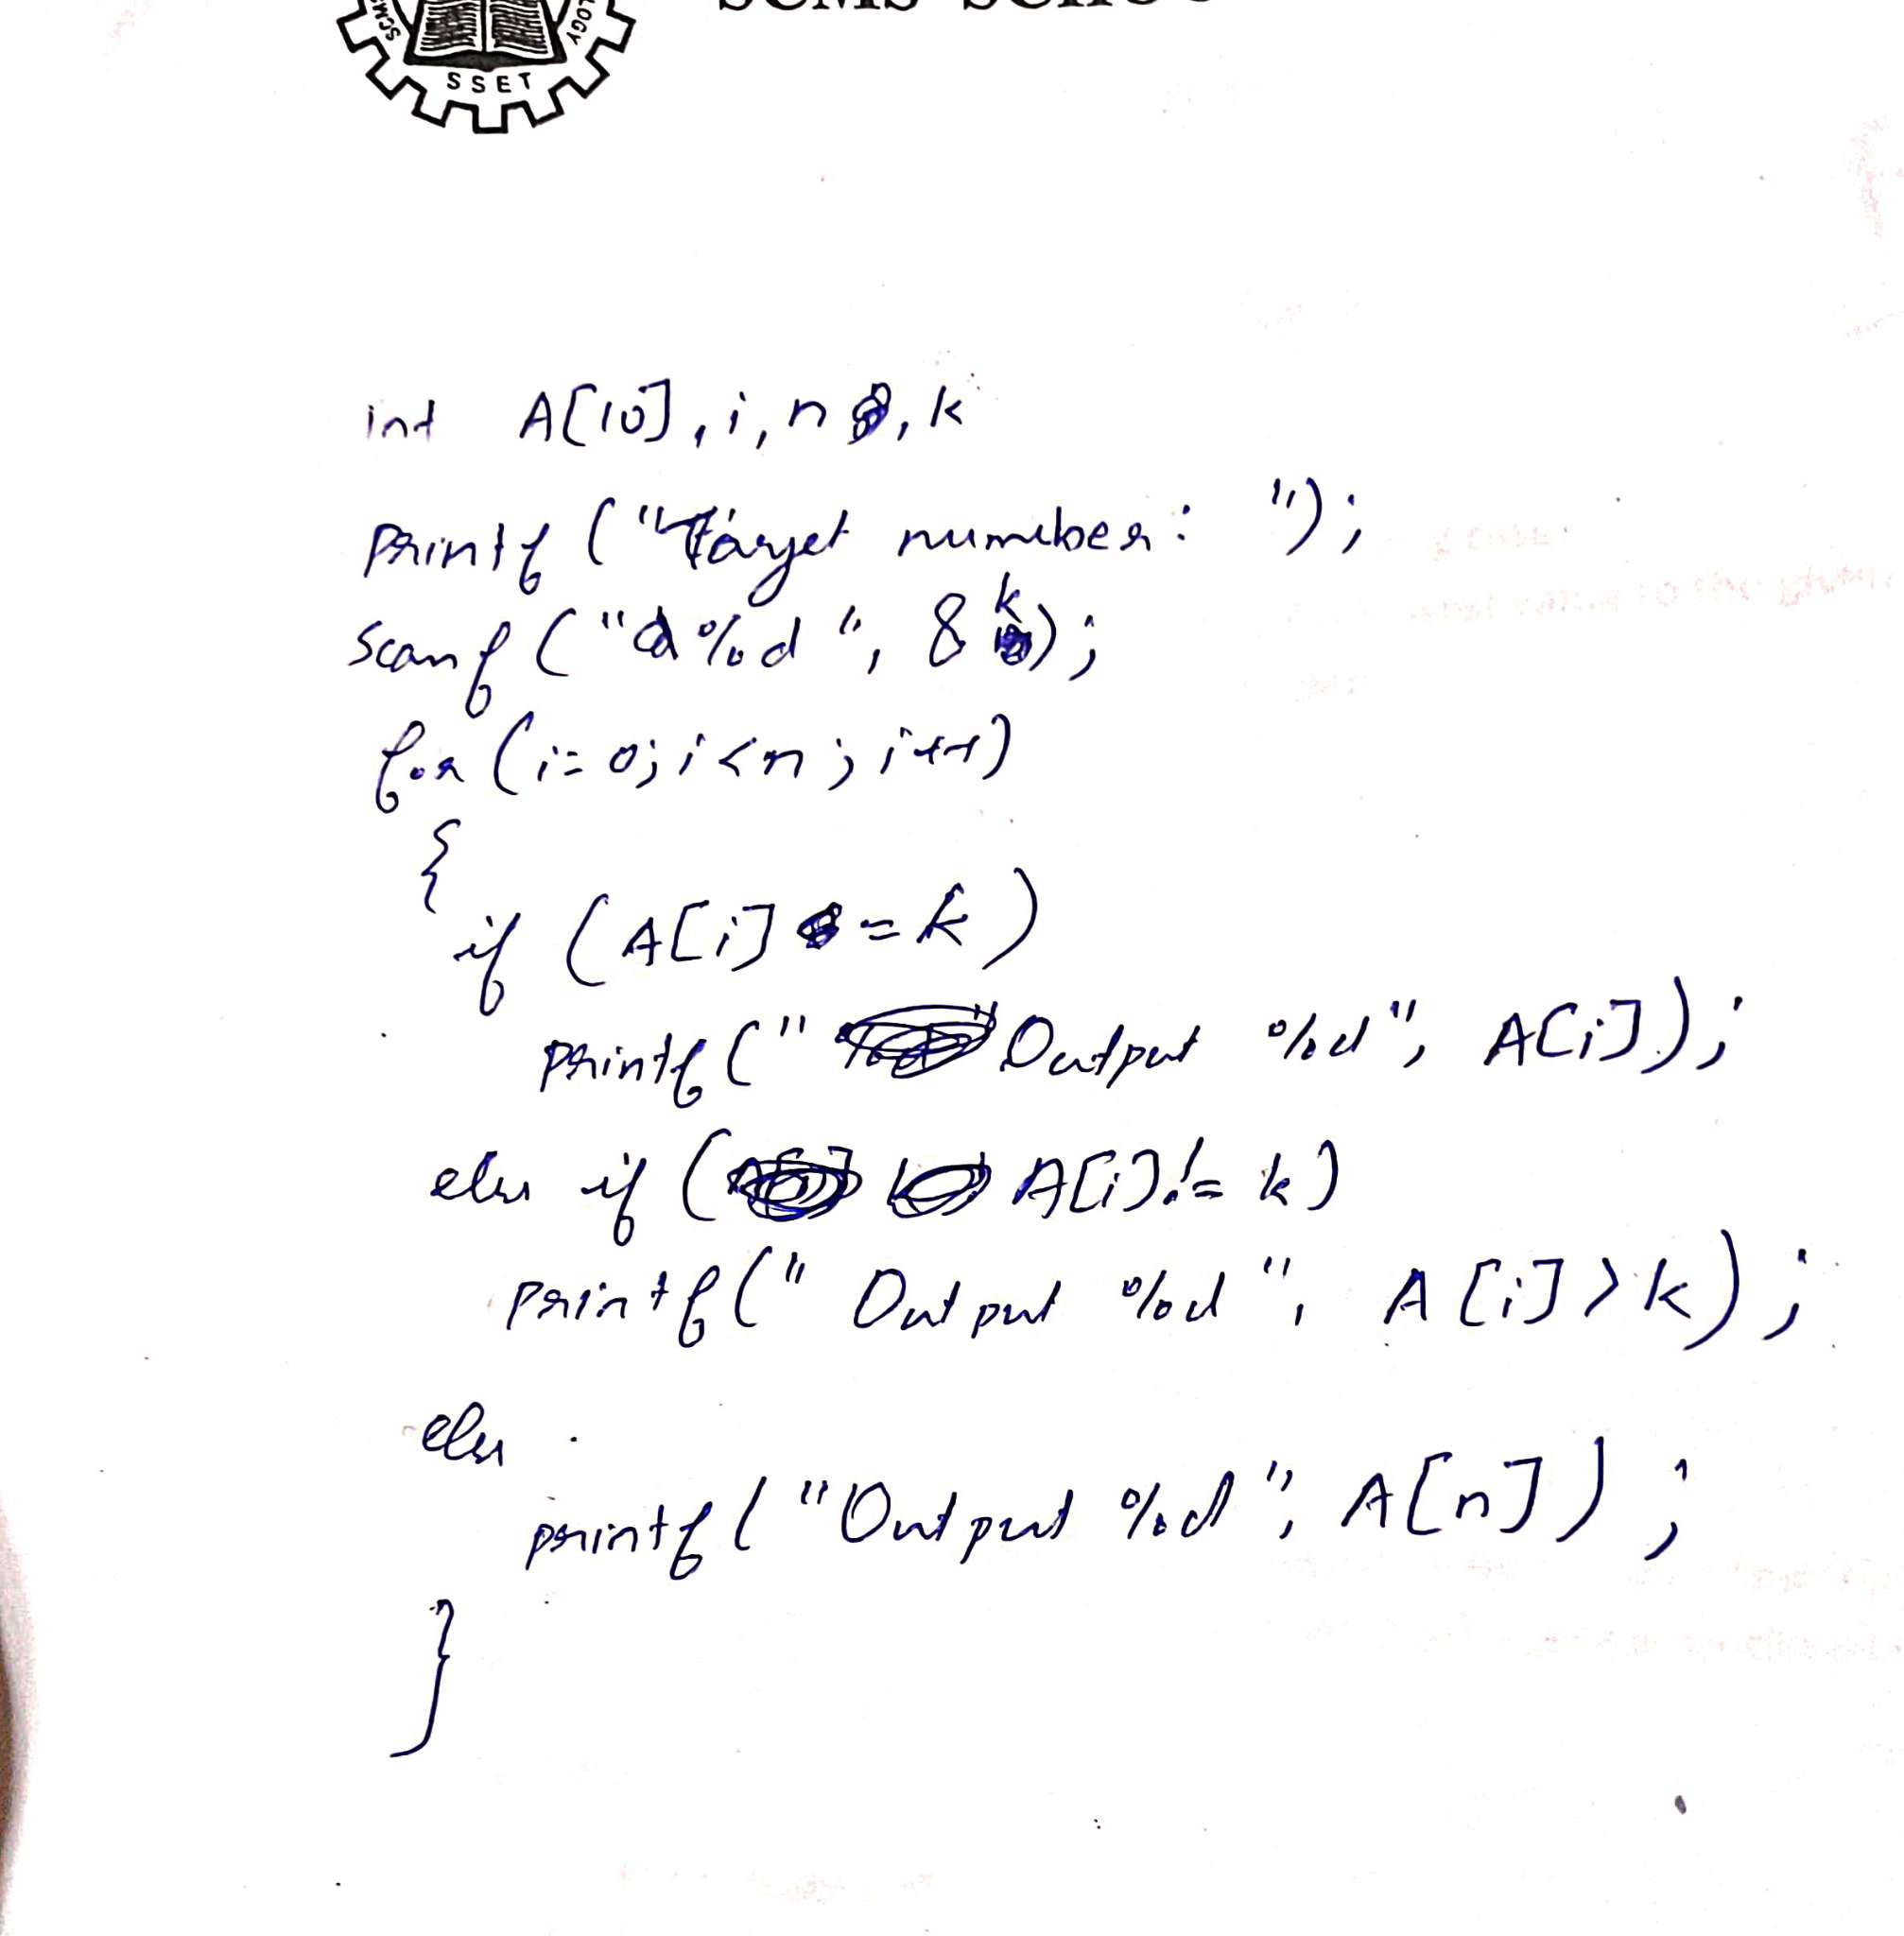 SSET
int A[10], i, n, k
printf ("Target number: ");
scanf ("%d", &k);
for (i=0; i<n; i++)
{
if (A[i] = k)
printf (" Output %d", A[i]);
else if ( A[i] != k)
printf (" Output %d ", A[i] > k);
else
printf ("Output %d", A[n]);
}